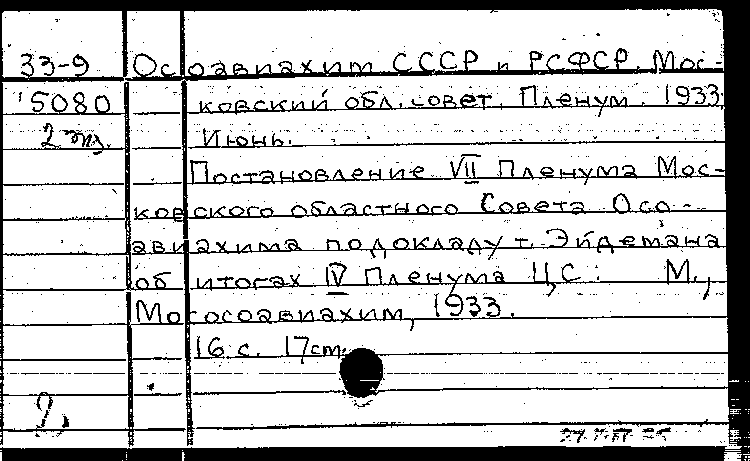 33-9 Осоавиахим СССР и РСФСР. Мос-
5080 ковский обл. совет. Пленум. 1933.
2 экз. Июнь.
Постановление VII Пленума Мос-
ковского областного Совета Осо-
авиахима по докладу т. Эйдемана
об итогах IV Пленума ЦС. М.,
Мособосоавиахим, 1933.
16 с. 17 см.